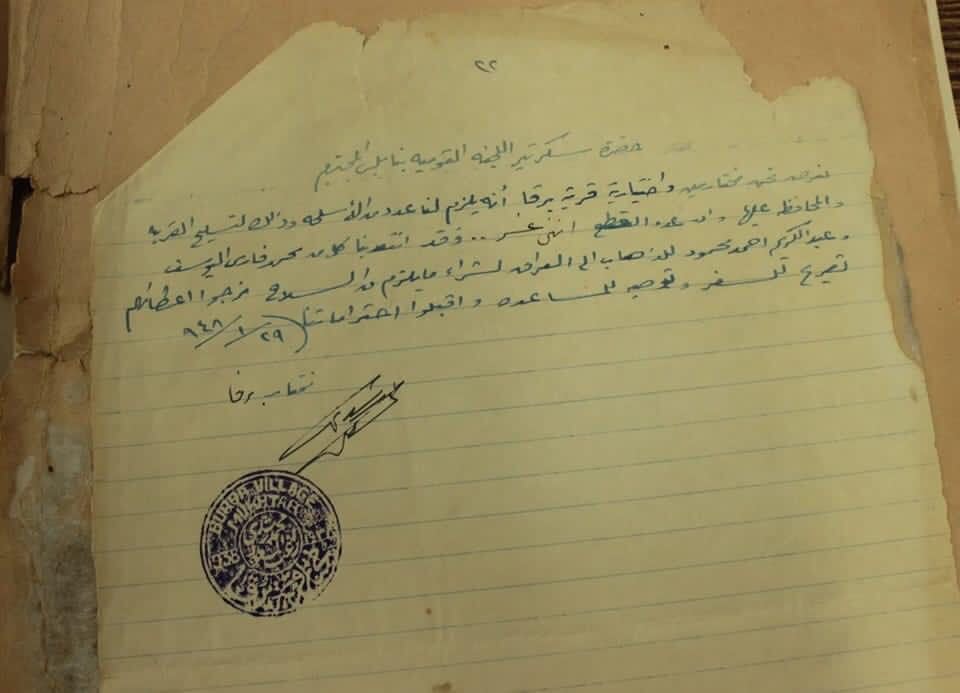 ٢٢
حضرة سكرتير اللجنه القوميه بنابلس المحترم
نعرض نحن مختارين واختيارية قرية برقا أنه يلزم لنا عدد من الأسلحه وذلك لتسليح القريه
والمحافظه عليها وان عدد القطع اثنى عشر .. وقد انتدبنا كل من فارس اليوسف
وعبدالكريم احمد محمود للذهاب الى العراق لشراء ما يلزم من السلاح نرجوا اعطائهم
تصريح للسفر وتوصيه للمساعده واقبلوا احتراماتنا ٢٩/١/٩٤٨
برقا
BURQA VILLAGE
MUKHTAR
1938